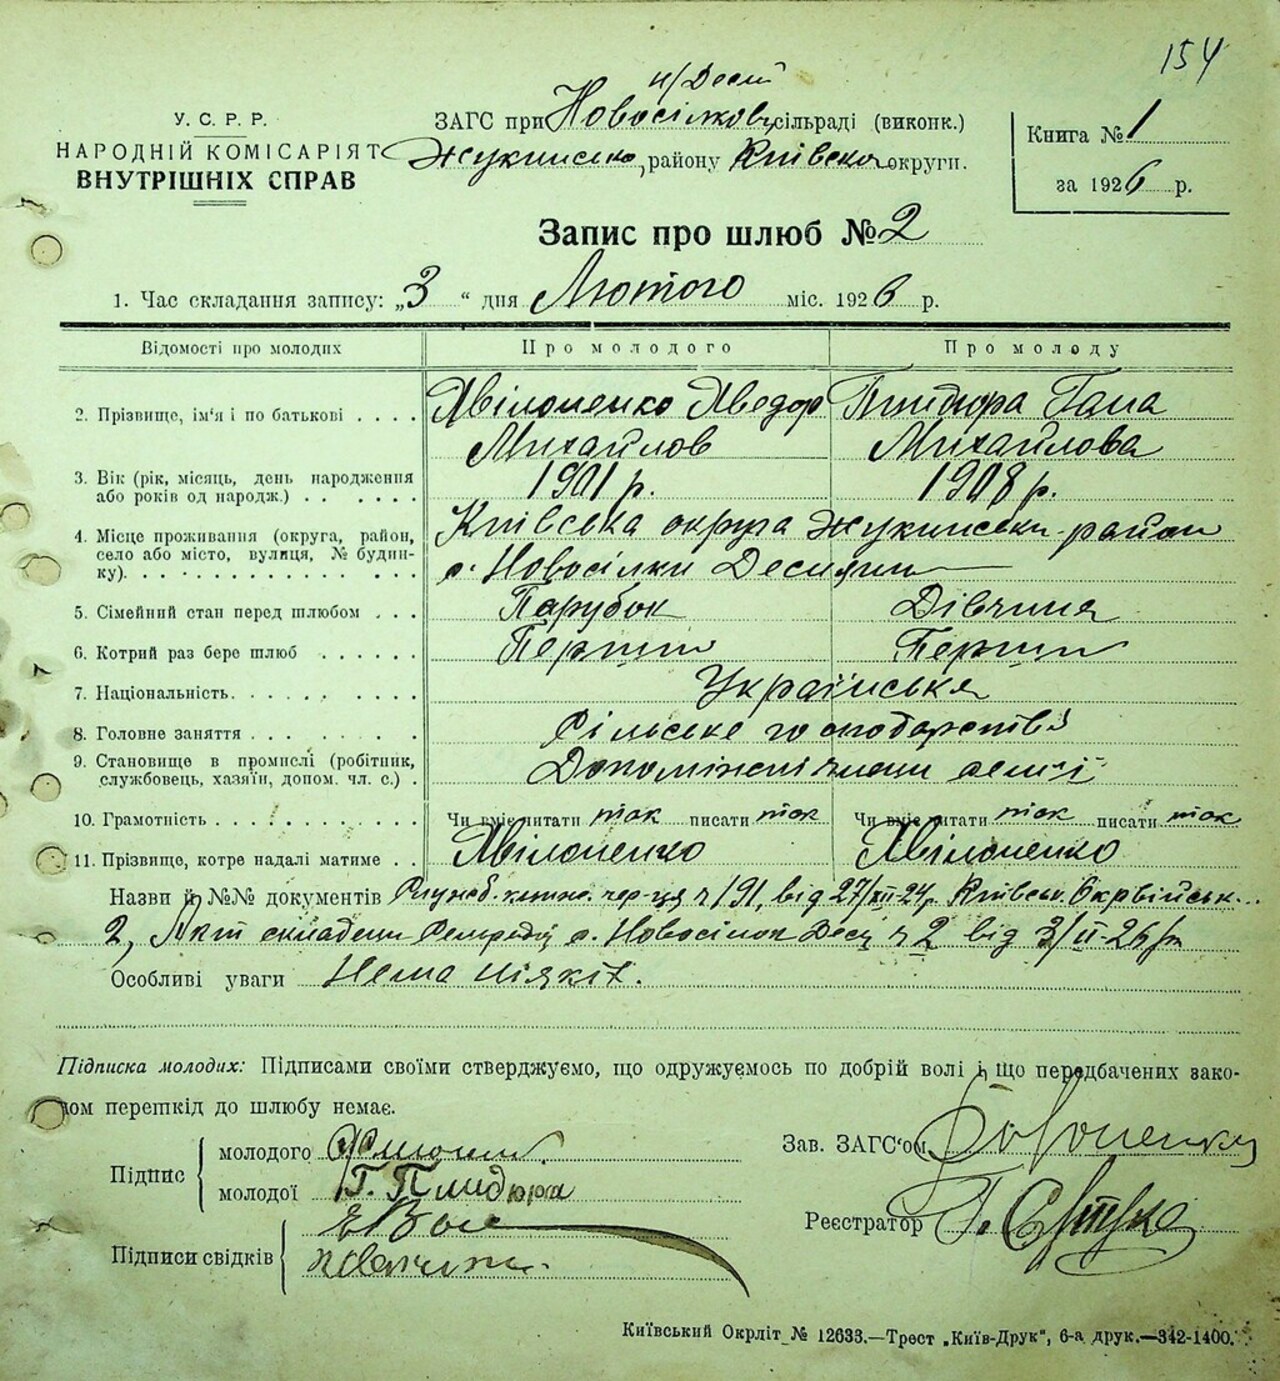 154
н/Десн
У. С. Р. Р.
НАРОДНІЙ КОМІСАРІЯТ
ВНУТРІШНІХ СПРАВ
ЗАГС при Новосілков, сільраді (виконк.)
Жукинсько, району Київсько округи.
Книга № 1
за 1926 р.
Запис про шлюб № 2
1. Час складання запису: „3“ дня Лютого міс. 1926 р.
Відомості про молодих Про молодого Про молоду
2. Прізвище, ім'я і по батькові . . . . Явілопенко Хведор Михайлов
Гана Михайлова
3. Вік (рік, місяць, день народження або років од народж.) . . . . . . . 1901 р. 1908 р.
4. Місце проживання (округа, район, село або місто, вулиця, № будинку). Київська округа Жукинський район
с. Новосілки
5. Сімейний стан перед шлюбом . . . Парубок Дівчина
6. Котрий раз бере шлюб . . . . . . Перший Перший
7. Національність. . . . . . . . . Українська
8. Головне заняття . . . . . . . . Сільське господарство
9. Становище в промислі (робітник, службовець, хазяїн, допом. чл. с.) . Допоміжні члени семії
10. Грамотність . . . . . . . . . . Чи вміє читати так писати так Чи вміє читати так писати так
11. Прізвище, котре надалі матиме . . Явілопенко Явілопенко
Назви й №№ документів Служб. книж. чер-ця ч 191, від 27/XII-24р. Київськ. Окрвійськ...
2, Акт складени с. Новосілок Десн ч 2 від 3/II-26 р
Особливі уваги Нема ніяких.
Підписка молодих: Підписами своїми стверджуємо, що одружуємось по добрій волі і що передбачених зако-
ном перешкід до шлюбу немає.
Підпис молодого
молодої Г.
Підписи свідків
Зав. ЗАГС'ом
Реєстратор Г.
Київський Окрліт № 12633.—Трест „Київ-Друк“, 6-а друк.—342-1400.